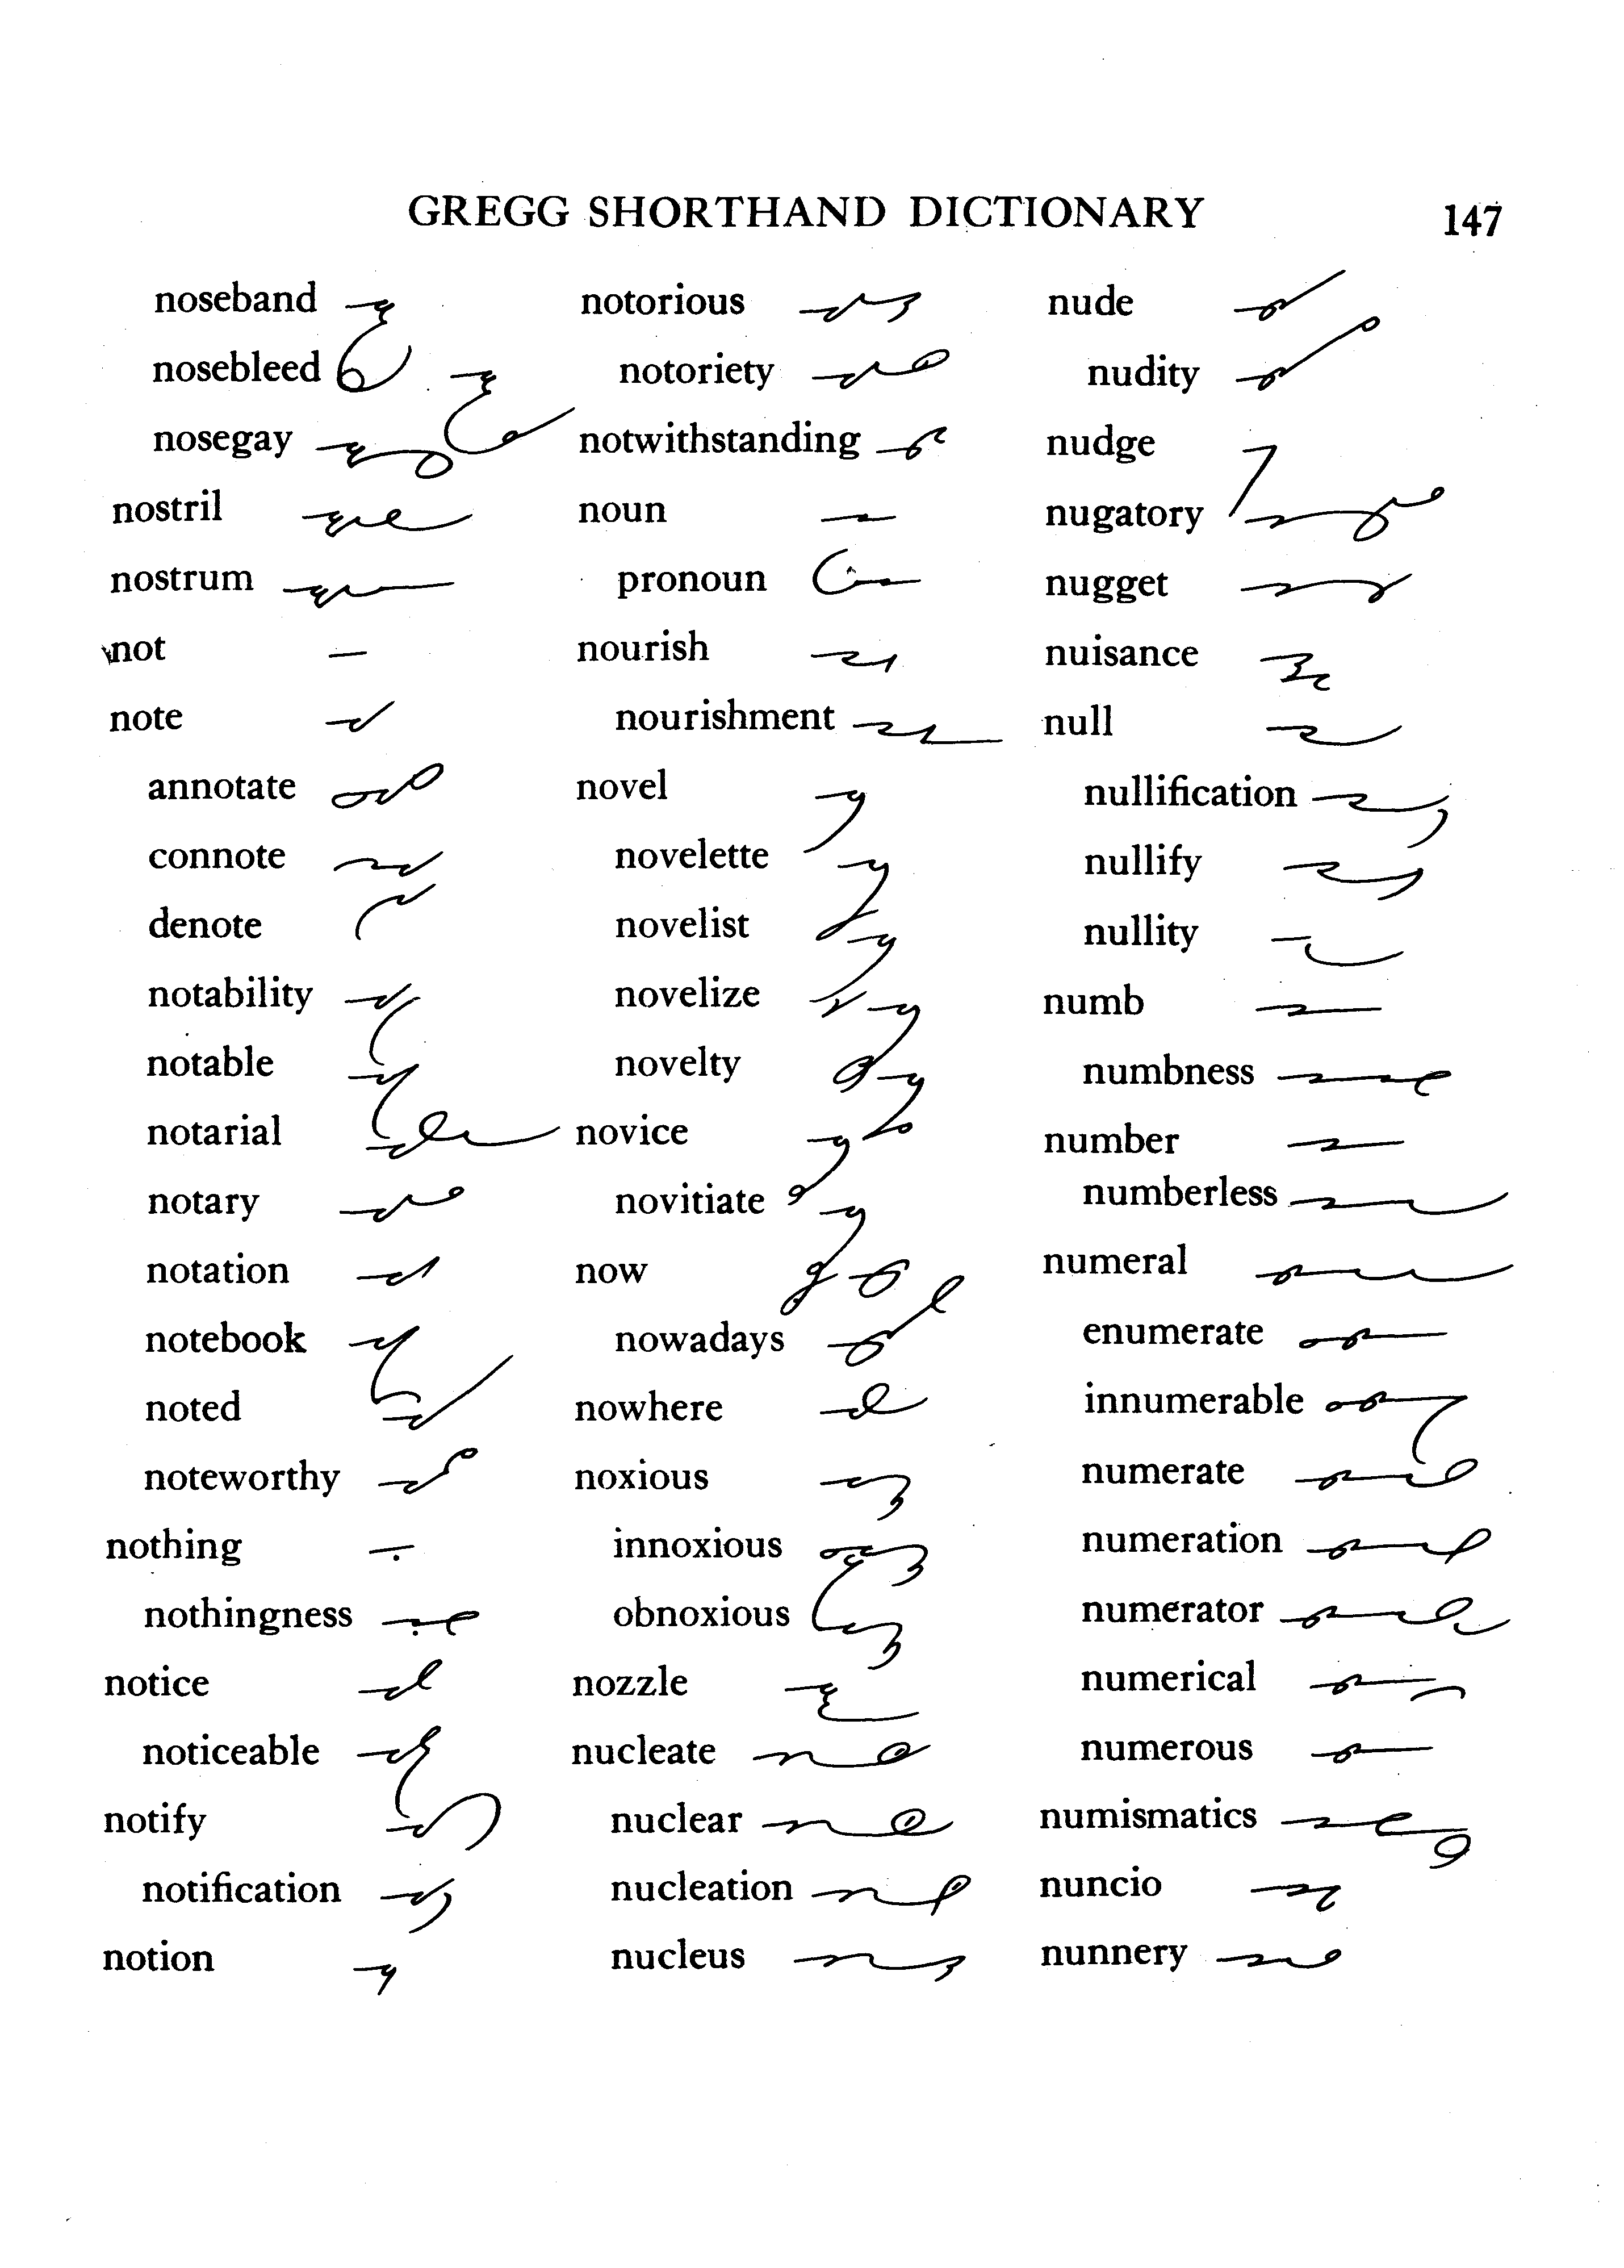 GREGG SHORTHAND DICTIONARY 147
noseband
nosebleed
nosegay
nostril
nostrum
not
note
annotate
connote
denote
notability
notable
notarial
notary
notation
notebook
noted
noteworthy
nothing
nothingness
notice
noticeable
notify
notification
notion
notorious
notoriety
notwithstanding
noun
pronoun
nourish
nourishment
novel
novelette
novelist
novelize
novelty
novice
novitiate
now
nowadays
nowhere
noxious
innoxious
obnoxious
nozzle
nucleate
nuclear
nucleation
nucleus
nude
nudity
nudge
nugatory
nugget
nuisance
null
nullification
nullify
nullity
numb
numbness
number
numberless
numeral
enumerate
innumerable
numerate
numeration
numerator
numerical
numerous
numismatics
nuncio
nunnery